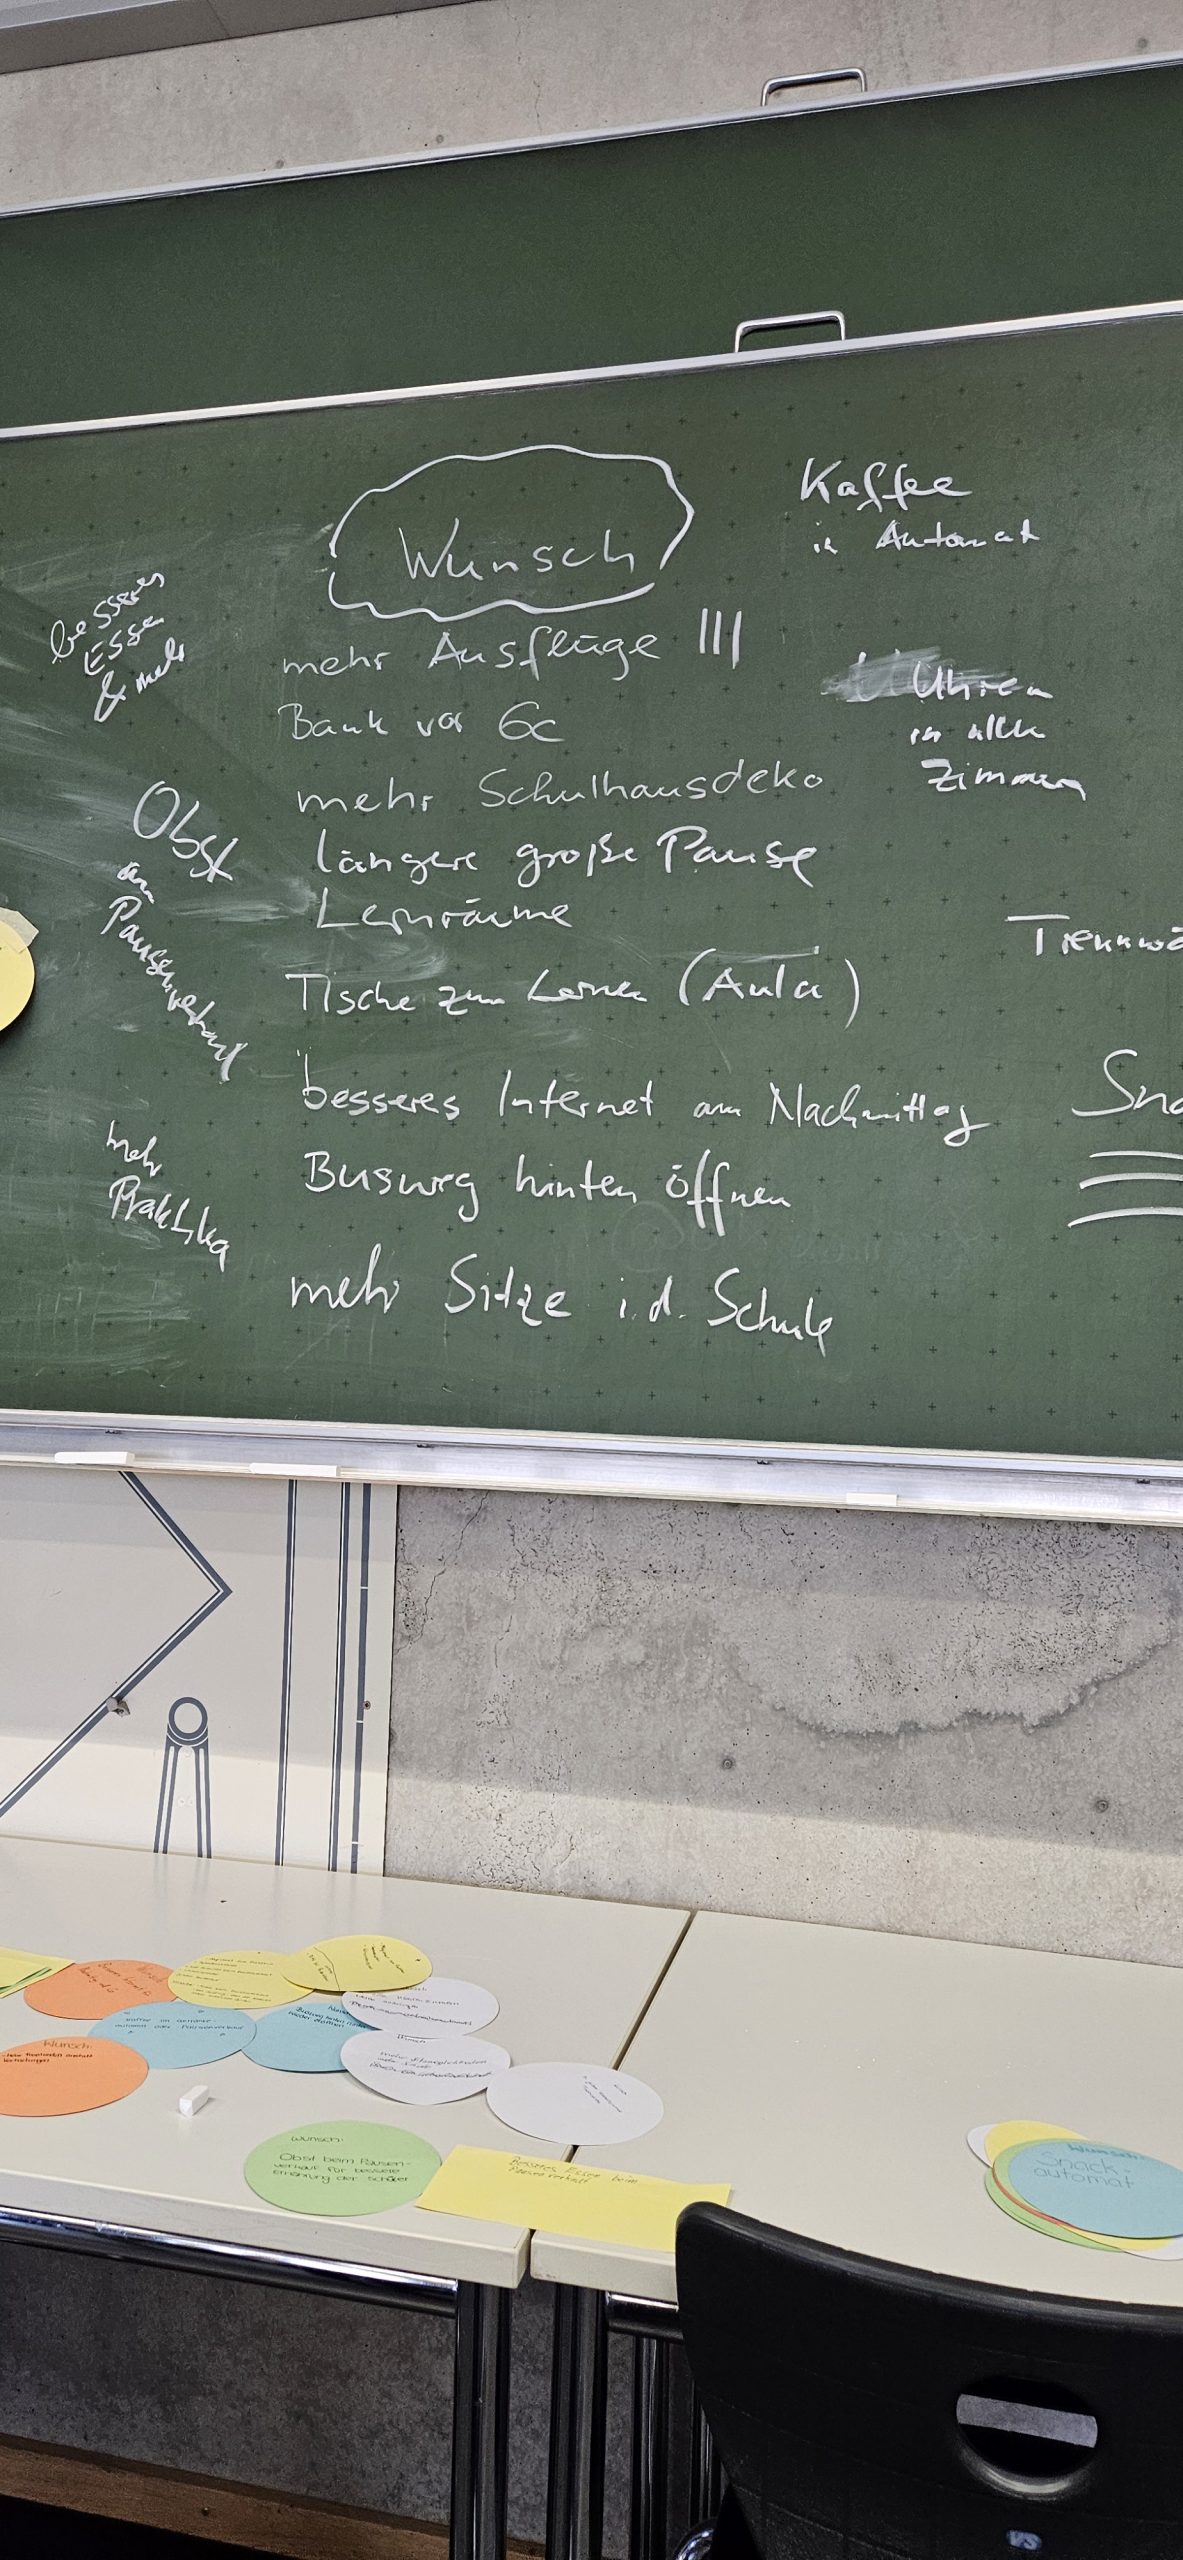 Wunsch
mehr Ausflüge |||
Bank vor 6c
mehr Schulhausdeko
längere große Pause
Lernräume
Tische zum Lernen (Aula)
besseres Internet am Nachmittag
Busweg hinten öffnen
mehr Sitze i.d. Schule
besseres
Essen
& mehr
Obst
am
Pausenverkauf
mehr
Praktika
Kaffee
in Automat
Uhren
in allen
Zimmern
Trennwä
Sna
Wunsch:
Obst beim Pausen-
verkauf für bessere
Ernährung der Schüler
Besseres Essen beim
Pausenverkauf
Wunsch:
Snack-
automat
Wunsch:
Kaffee im Getränke-
automat oder Pausenverkauf
Busweg hinten
wieder öffnen
Wunsch:
VS